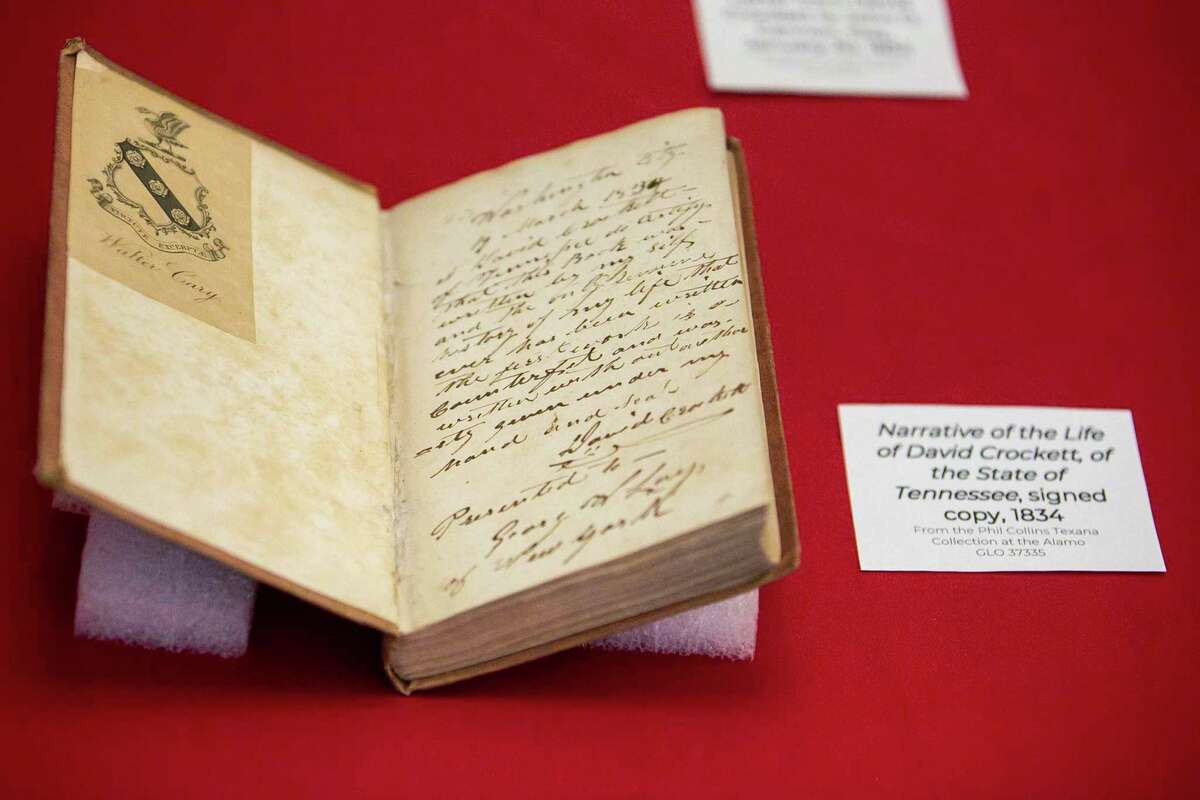 Walter Cary
Washington City
March 1834
I David Crockett
of Tennessee do certify
that this Book was
written by my self
and the only genuine
history of my life that
ever has been written
the first work is a
Counterfeit and was
written with out author
=ety given under my
hand and seal
David Crockett
Presented to
Georg
of New York
Narrative of the Life
of David Crockett, of
the State of
Tennessee, signed
copy, 1834
From the Phil Collins Texana
Collection at the Alamo
GLO 37335